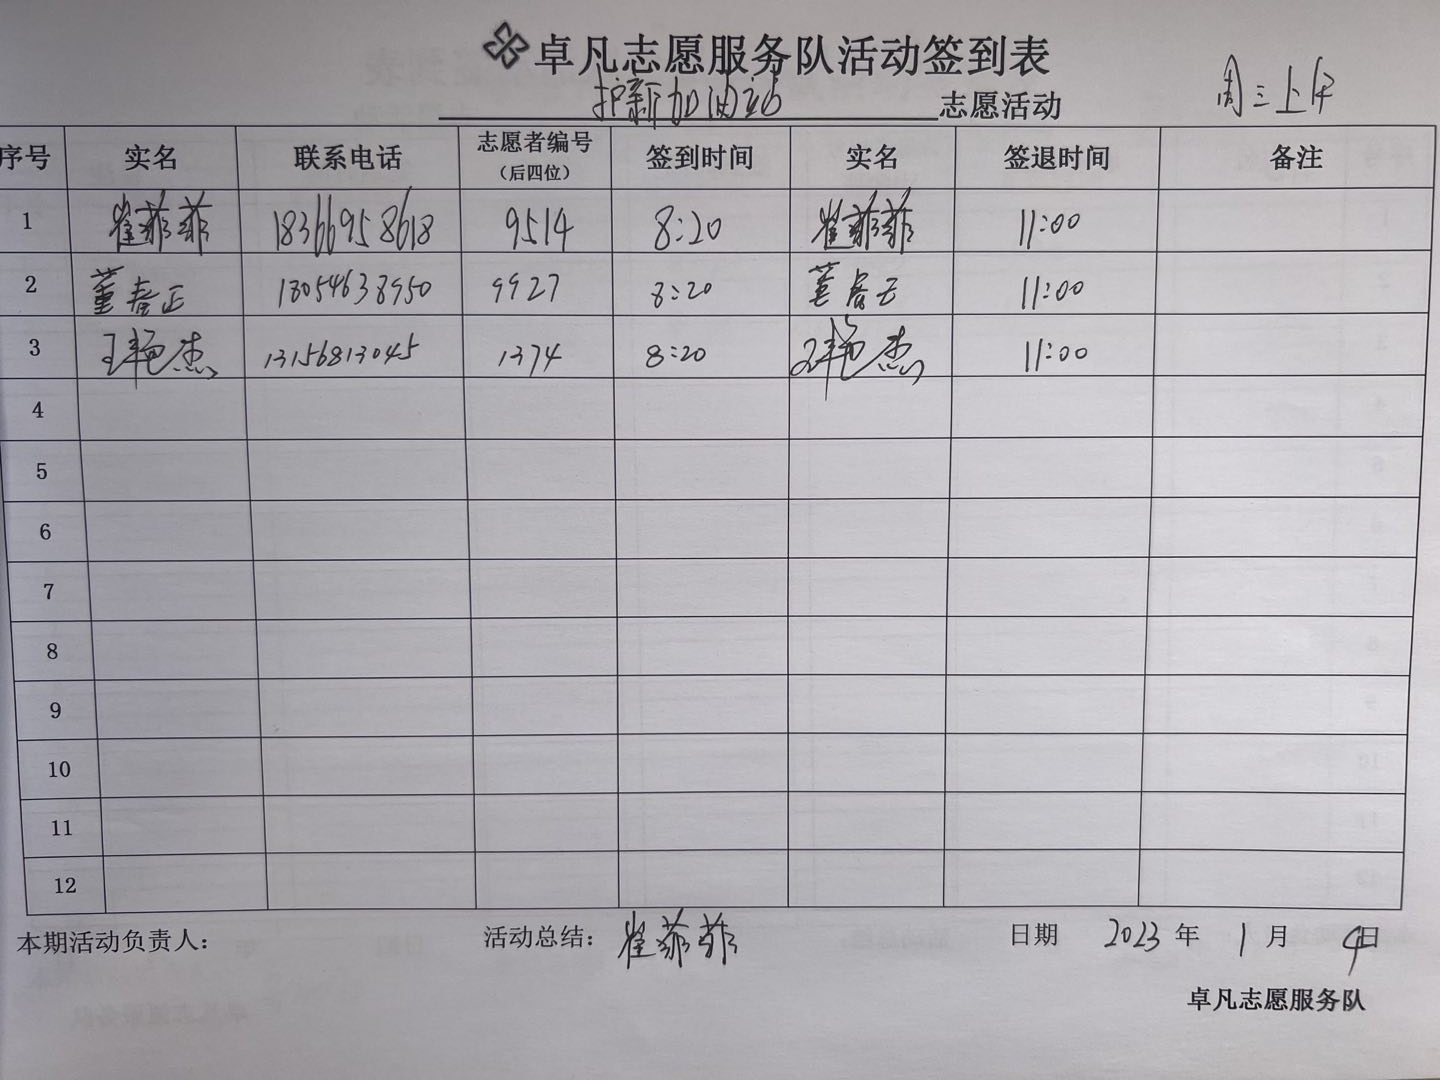 卓凡志愿服务队活动签到表
护新加油站 志愿活动 周三上午
序号 实名 联系电话 志愿者编号（后四位） 签到时间 实名 签退时间 备注
1 崔菲菲 18366958618 9514 8:20 崔菲菲 11:00
2 董春正 18054638950 9927 8:20 董春正 11:00
3 王艳杰 13156813045 1374 8:20 王艳杰 11:00
4
5
6
7
8
9
10
11
12
本期活动负责人： 活动总结： 崔菲菲 日期 2023 年 1 月 4日
卓凡志愿服务队